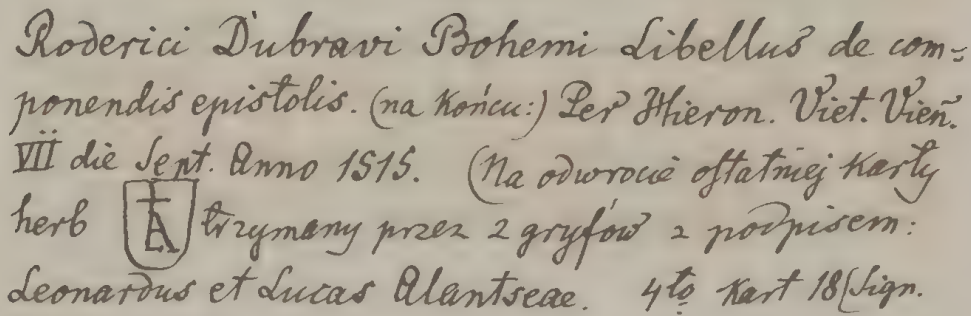 Roderici Dubravi Bohemi Libellus de com=
ponendis epistolis. (na końcu:) Per Hieron. Viet. Vieñ.
VII die Sept. Anno 1515. (Na odwrocie ostatniej karty
herb LA trzymany przez 2 gryfów z podpisem:
Leonardus et Lucas Alantseae. 4to Kart 18 (Sign.